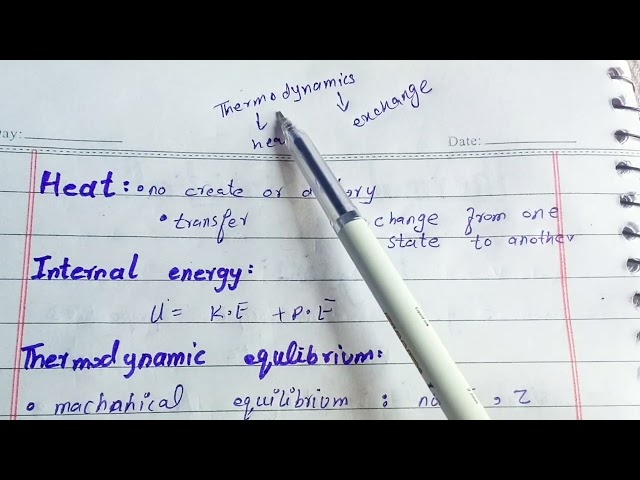 Thermodynamics
exchange
Day:
Date:
Heat: • no create or
• transfer change from one
state to another
Internal energy:
U = K.E + P.E
Thermodynamic equlibrium:
• machanical equilibrium :